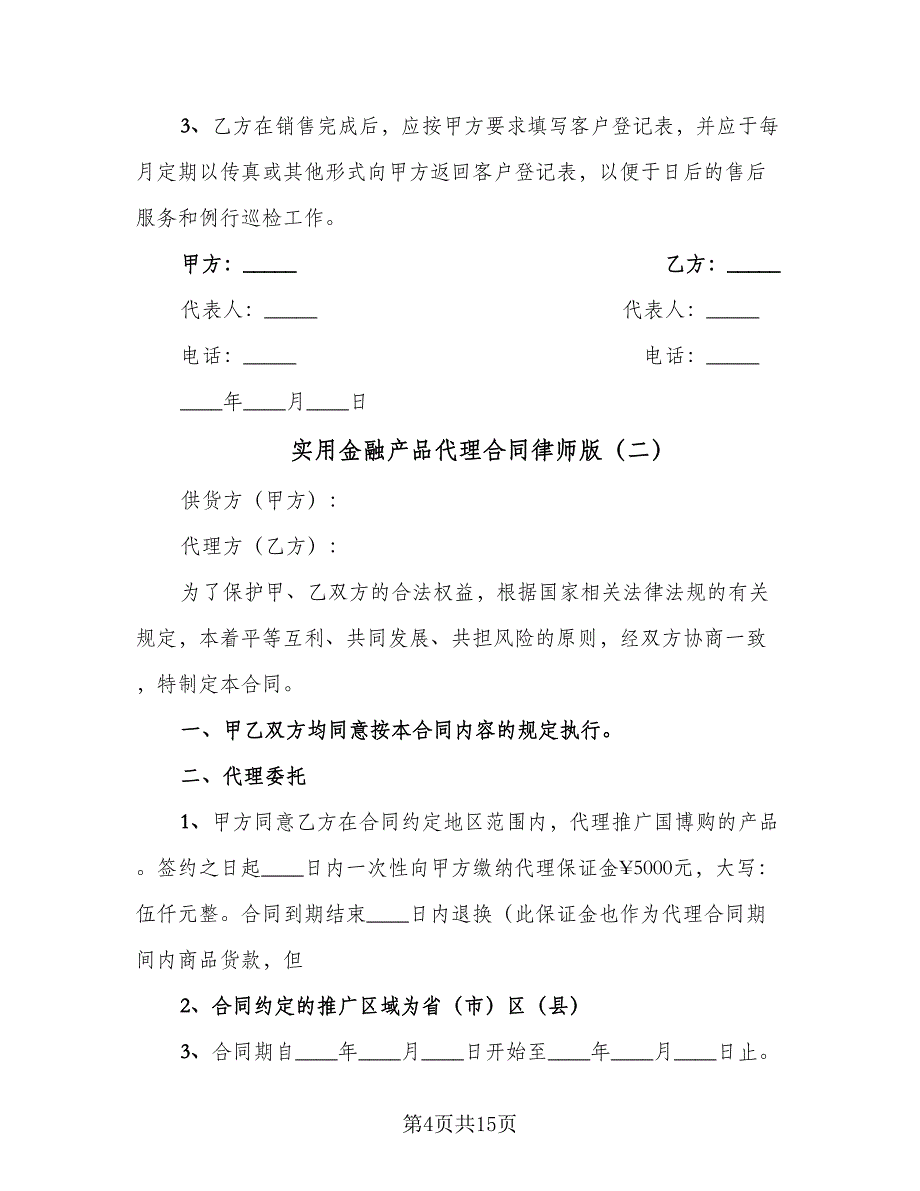 3、乙方在销售完成后，应按甲方要求填写客户登记表，并应于每
月定期以传真或其他形式向甲方返回客户登记表，以便于日后的售后
服务和例行巡检工作。
甲方：_____ 乙方：_____
代表人：_____ 代表人：_____
电话：_____ 电话：_____
____年____月____日
实用金融产品代理合同律师版（二）
供货方（甲方）：
代理方（乙方）：
为了保护甲、乙双方的合法权益，根据国家相关法律法规的有关
规定，本着平等互利、共同发展、共担风险的原则，经双方协商一致
，特制定本合同。
一、甲乙双方均同意按本合同内容的规定执行。
二、代理委托
1、甲方同意乙方在合同约定地区范围内，代理推广国博购的产品
。签约之日起____日内一次性向甲方缴纳代理保证金¥5000元，大写：
伍仟元整。合同到期结束____日内退换（此保证金也作为代理合同期
间内商品货款，但
2、合同约定的推广区域为省（市）区（县）
3、合同期自____年____月____日开始至____年____月____日止。
第4页共15页